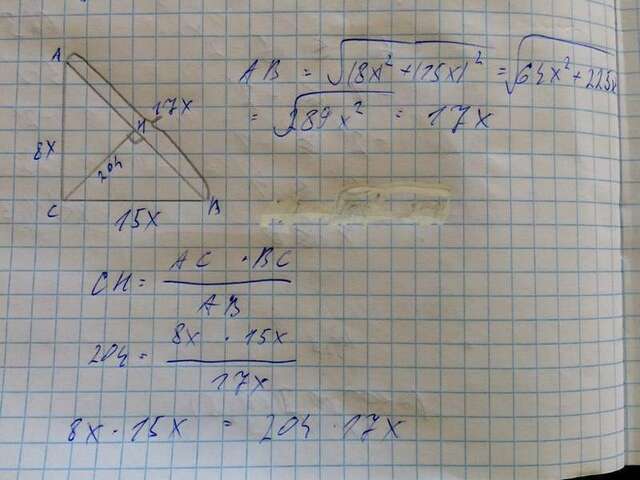 A
17x
H
8x
204
C
15x
B
AB = √(8x)² + (15x)² = √64x² + 225x
= √289x² = 17x
CH = AC · BC / AB
204 = 8x · 15x / 17x
8x · 15x = 204 · 17x